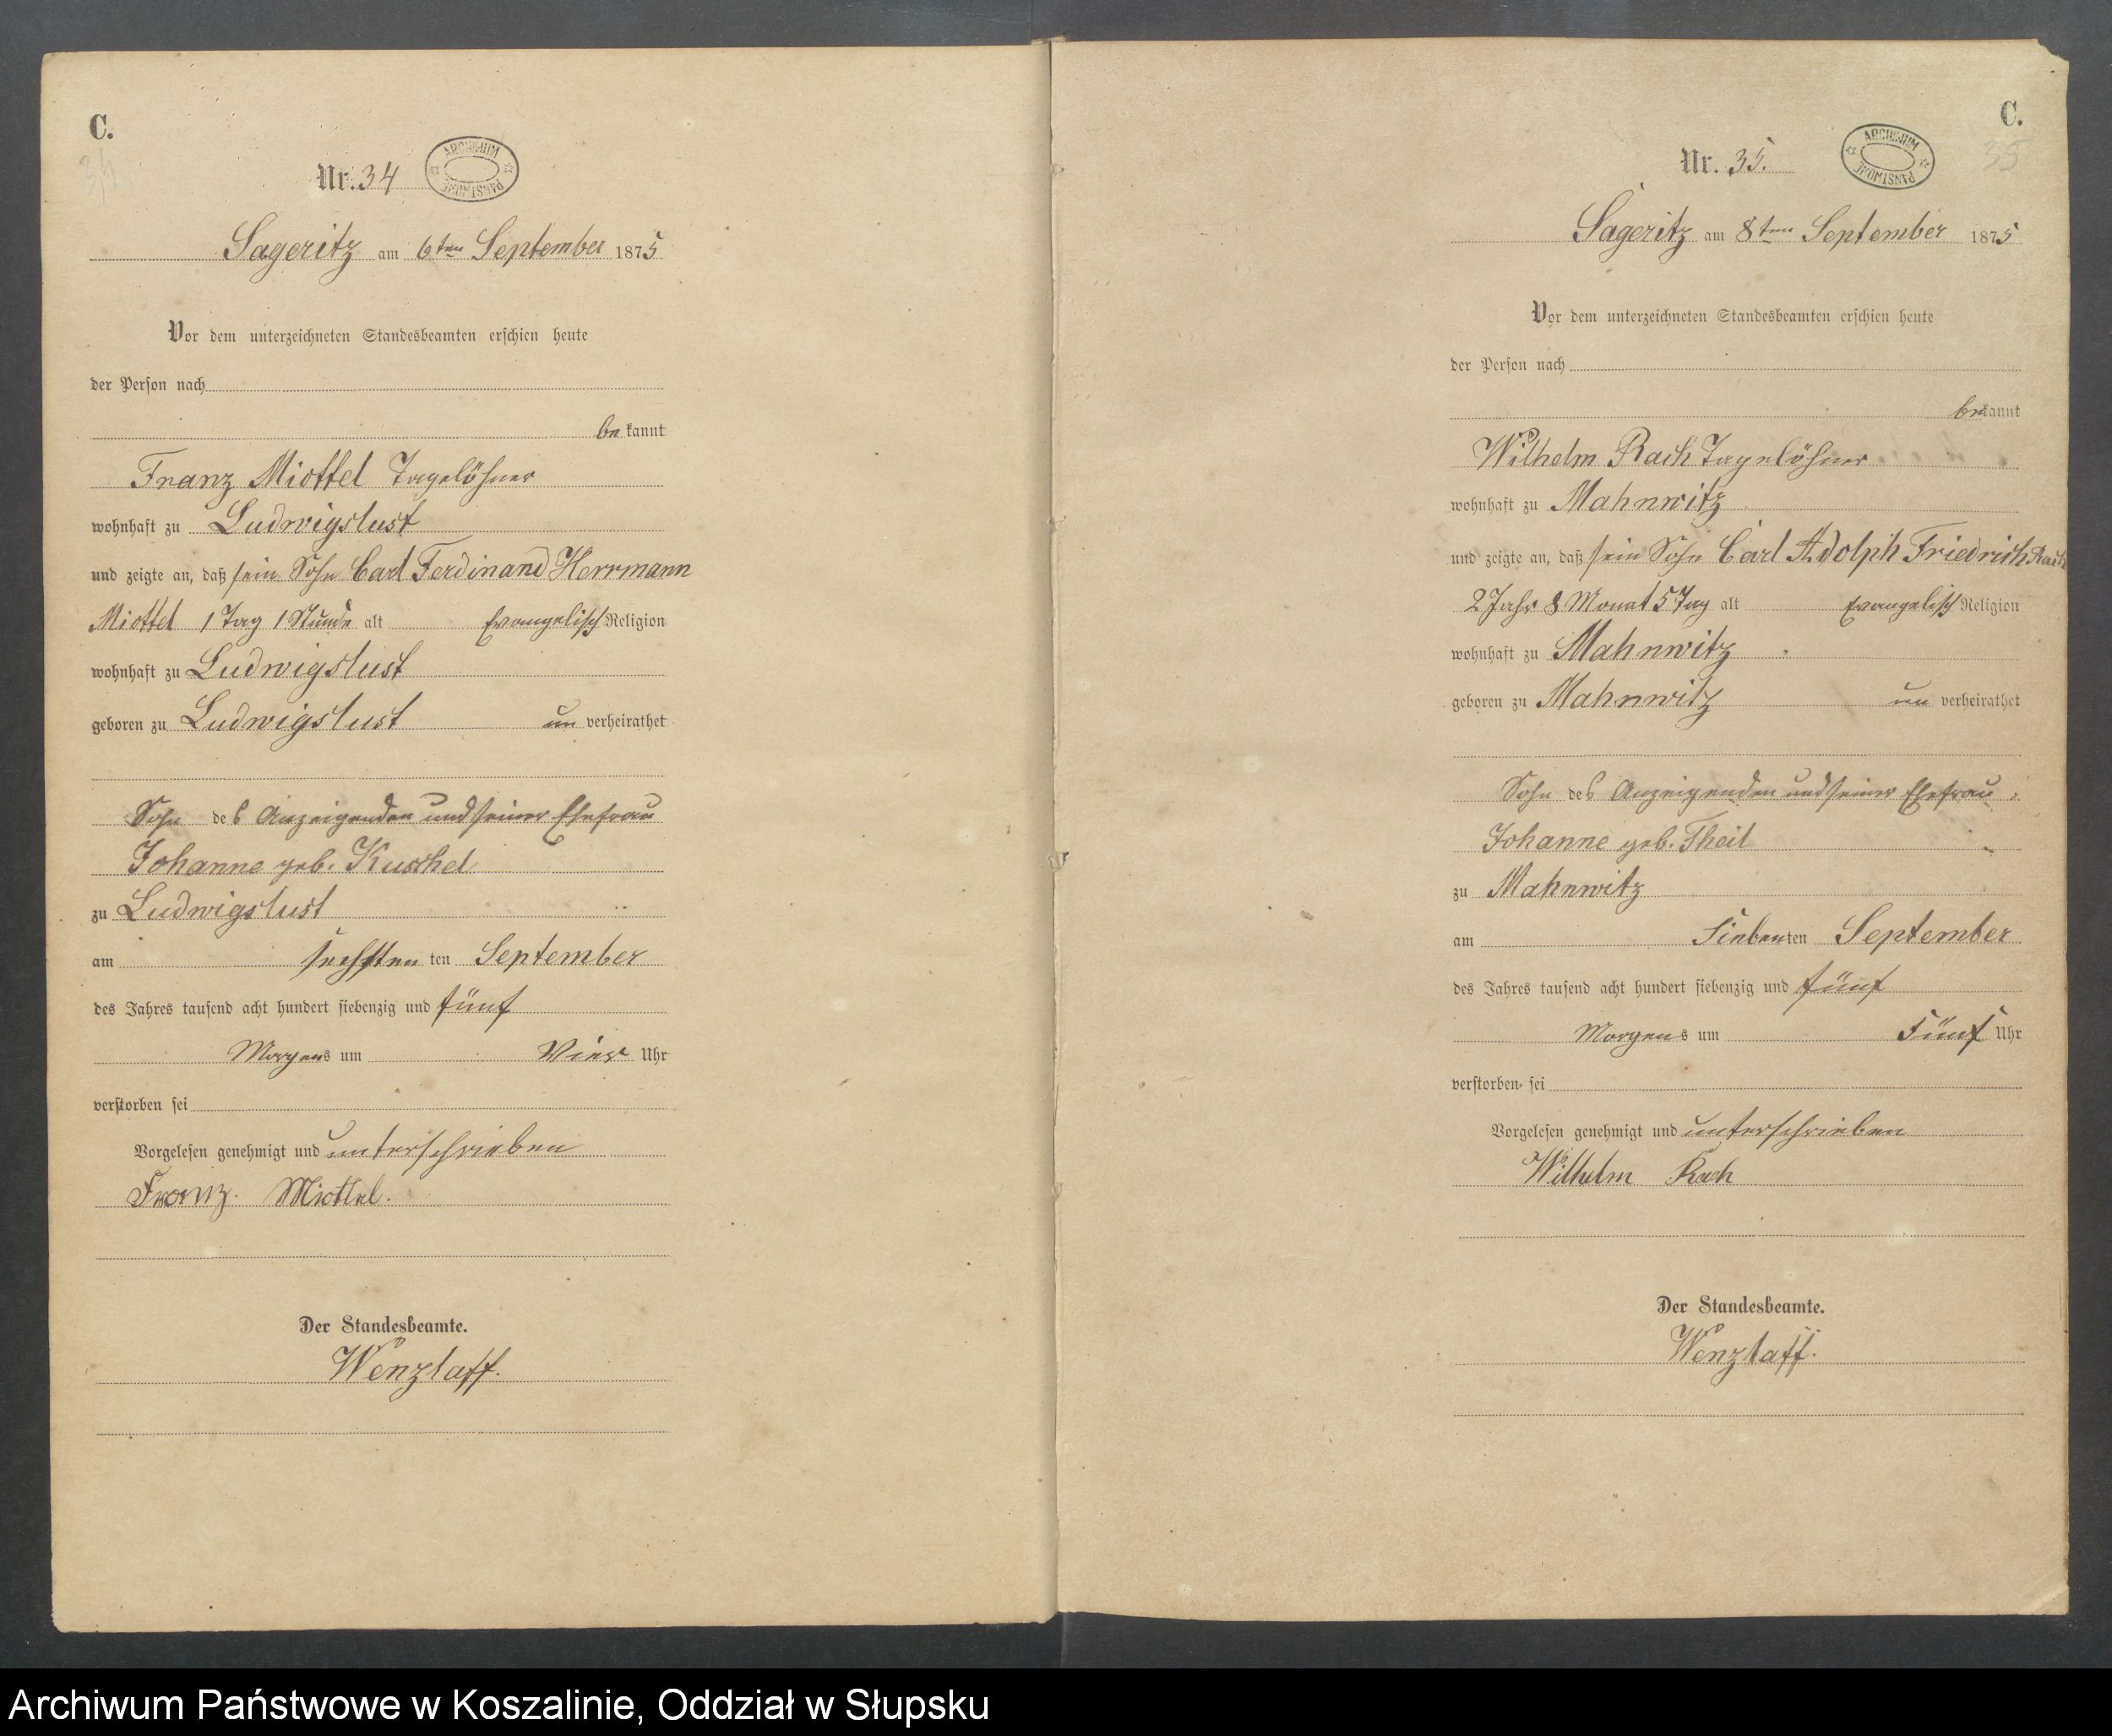 C.
34
Nr. 34
ARCHIWUM PAŃSTWOWE
Sageritz am 6ten September 1875
Vor dem unterzeichneten Standesbeamten erschien heute
der Person nach
bekannt
Franz Miottel Tagelöhner
wohnhaft zu Ludwigslust
und zeigte an, daß sein Sohn Carl Ferdinand Herrmann
Miottel 1 Tag 1 Stunde alt Evangelisch Religion
wohnhaft zu Ludwigslust
geboren zu Ludwigslust un verheirathet
Sohn des Anzeigenden und seiner Ehefrau
Johanne geb. Kuschel
zu Ludwigslust
am sechsten ten September
des Jahres tausend acht hundert siebenzig und fünf
Morgens um Vier Uhr
verstorben sei
Vorgelesen genehmigt und unterschrieben
Franz. Miottel.
Der Standesbeamte.
Wenzlaff.
C.
35
Nr. 35.
ARCHIWUM PAŃSTWOWE
Sageritz am 8ten September 1875
Vor dem unterzeichneten Standesbeamten erschien heute
der Person nach
bekannt
Wilhelm Rach Tagelöhner
wohnhaft zu Mahnwitz
und zeigte an, daß sein Sohn Carl Adolph Friedrich Rach
2 Jahr 8 Monat 5 Tag alt Evangelisch Religion
wohnhaft zu Mahnwitz
geboren zu Mahnwitz un verheirathet
Sohn des Anzeigenden und seiner Ehefrau
Johanne geb. Theil
zu Mahnwitz
am Siebenten September
des Jahres tausend acht hundert siebenzig und fünf
Morgens um Fünf Uhr
verstorben sei
Vorgelesen genehmigt und unterschrieben
Wilhelm Rach
Der Standesbeamte.
Wenzlaff.
Archiwum Państwowe w Koszalinie, Oddział w Słupsku